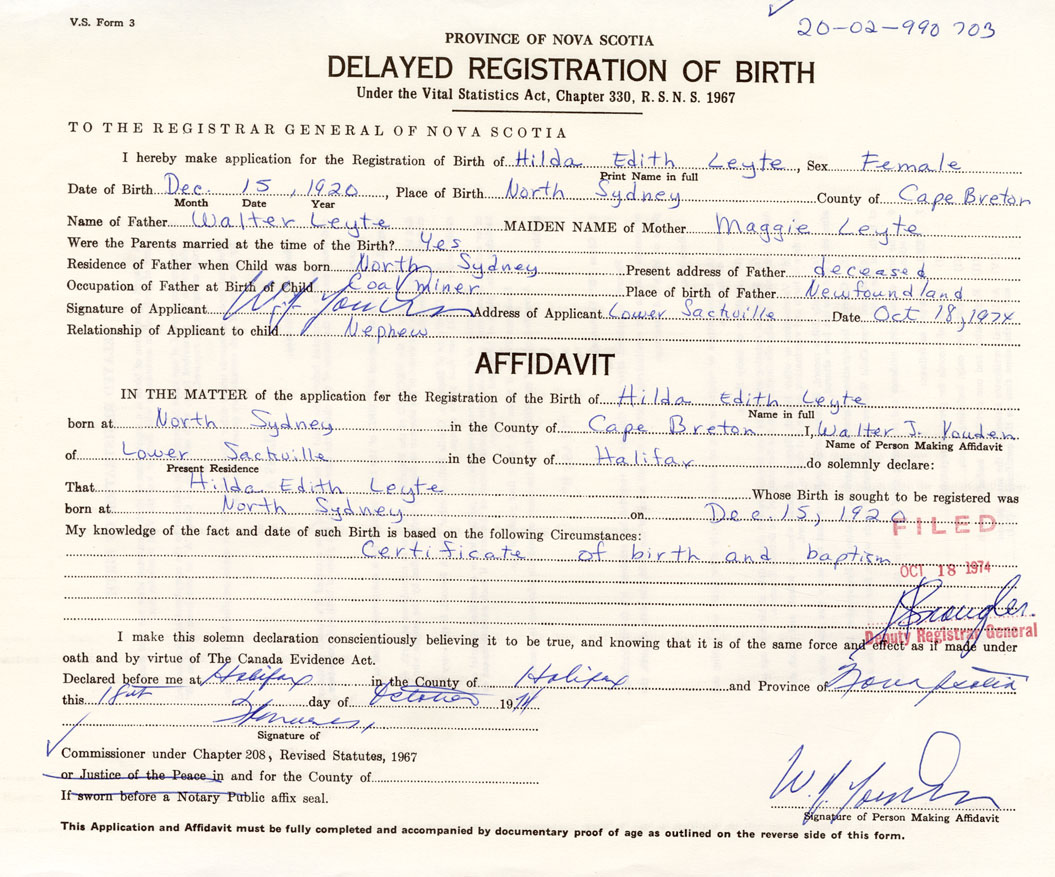 V.S. Form 3
20-02-990 703
PROVINCE OF NOVA SCOTIA
DELAYED REGISTRATION OF BIRTH
Under the Vital Statistics Act, Chapter 330, R.S.N.S. 1967
TO THE REGISTRAR GENERAL OF NOVA SCOTIA
I hereby make application for the Registration of Birth of Hilda Edith Leyte, Sex Female
Print Name in full
Date of Birth Dec. 15, 1920, Place of Birth North Sydney County of Cape Breton
Month Date Year
Name of Father Walter Leyte MAIDEN NAME of Mother Maggie Leyte
Were the Parents married at the time of the Birth? Yes
Residence of Father when Child was born North Sydney Present address of Father deceased
Occupation of Father at Birth of Child Coal miner Place of birth of Father Newfoundland
Signature of Applicant W. J. Youden Address of Applicant Lower Sackville Date Oct 18, 1974
Relationship of Applicant to child Nephew
AFFIDAVIT
IN THE MATTER of the application for the Registration of the Birth of Hilda Edith Leyte
Name in full
born at North Sydney in the County of Cape Breton I, Walter J. Youden
Name of Person Making Affidavit
of Lower Sackville in the County of Halifax do solemnly declare:
Present Residence
That Hilda Edith Leyte Whose Birth is sought to be registered was
born at North Sydney on Dec. 15, 1920
FILED
My knowledge of the fact and date of such Birth is based on the following Circumstances:
Certificate of birth and baptism
OCT 18 1974
Deputy Registrar General
I make this solemn declaration conscientiously believing it to be true, and knowing that it is of the same force and effect as if made under
oath and by virtue of The Canada Evidence Act.
Declared before me at Halifax in the County of Halifax and Province of Nova Scotia
this 18th day of October 1974
Signature of
Commissioner under Chapter 208, Revised Statutes, 1967
or Justice of the Peace in and for the County of
If sworn before a Notary Public affix seal.
W. J. Youden
Signature of Person Making Affidavit
This Application and Affidavit must be fully completed and accompanied by documentary proof of age as outlined on the reverse side of this form.